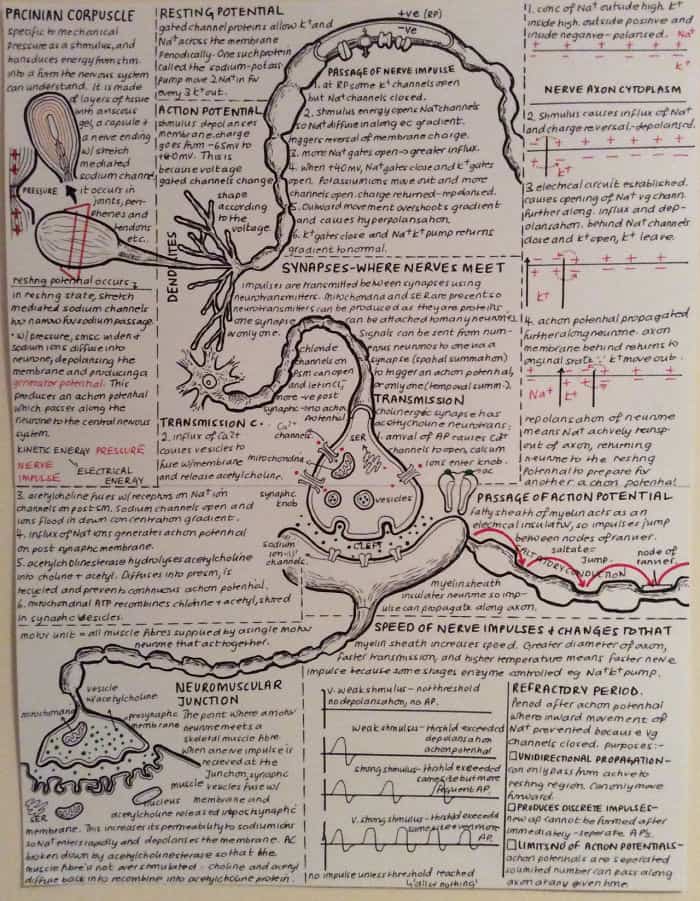 PACINIAN CORPUSCLE
specific to mechanical
pressure as a stimulus, and
transduces energy from stim.
into a form the nervous system
can understand. It is made
of layers of tissue
with a viscous
gel, a capsule +
a nerve ending
w/ stretch
mediated
sodium channel
it occurs in
joints, peri-
phenes and
tendons
etc..
PRESSURE
resting potential occurs:
in resting state, stretch
mediated sodium channels
too narrow for sodium passage
w/ pressure, smsc widen +
sodium ions diffuse into
neurone, depolarising the
membrane and producing a
generator potential. This
produces an action potential
which passes along the
neurone to the central nervous
system.
KINETIC ENERGY PRESSURE
NERVE
IMPULSE
ELECTRICAL
ENERGY
RESTING POTENTIAL
gated channel proteins allow K+ and
Na+ across the membrane
periodically. One such protein
called the sodium-potass.
pump move 2 Na+ in for
every 3 K+ out.
ACTION POTENTIAL
stimulus depolarises
membrane. charge
goes from -65mv to
+40mv. This is
because voltage
gated channels change
shape
according
to the
voltage.
DENDRITES
+ve (RP)
-ve
PASSAGE OF NERVE IMPULSE
1. at RP some K+ channels open
but Na+ channels closed.
2. stimulus energy opens Na+ channels
so Na+ diffuse in along ec gradient.
triggers reversal of membrane charge.
3. more Na+ gates open → greater influx.
4. when +40mv, Na+ gates close and K+ gates
open. Potassium ions move out and more
channels open. charge returned - repolarised.
5. outward movement overshoots gradient
and causes hyperpolarisation.
6. K+ gates close and Na+ K+ pump returns
gradient to normal.
1. conc of Na+ outside high. K+
inside high. outside positive and
inside negative - polarised. Na+
K+
NERVE AXON CYTOPLASM
2. Stimulus causes influx of Na+
and charge reversal - depolarised.
K+
3. electrical circuit established.
causes opening of Na+ vg chann.
further along. influx and dep-
olarisation. behind Na+ channels
close and K+ open, K+ leave.
K+
4. action potential propagated
further along neurone. axon
membrane behind returns to
original state ∵ K+ move out.
Na+
K+
repolarisation of neurone
means Na+ actively transp-
out of axon, returning
neurone to the resting
potential to prepare for
another action potential
SYNAPSES - WHERE NERVES MEET
impulses are transmitted between synapses using
neurotransmitters. Mitochondria and SER are present so
neurotransmitters can be produced as they are proteins.
one synapse can be attached to many neurones,
or only one. Signals can be sent from num-
erous neurones to one via a
synapse (spatial summation)
to trigger an action potential,
or only one (temporal summ-).
chloride
channels on
psm can open
and let in Cl,
more -ve post
synaptic → no action
potential
TRANSMISSION
cholinergic synapse has
acetylcholine neurotrans:
1. arrival of AP causes Ca2+
channels to open, calcium
ions enter knob.
TRANSMISSION C.
2. influx of Ca2+
causes vesicles to
fuse w/ membrane
and release acetylcholine.
Ca2+
channels
mitochondria
SER
vesicles
synaptic
knob
CLEFT
sodium
ion
channels
3. acetylcholine fuses w/ receptors on Na+ ion
channels on post sm. Sodium channels open and
ions flood in down concentration gradient.
4. influx of Na+ ions generates action potential
on post synaptic membrane.
5. acetylcholinesterase hydrolyses acetylcholine
into choline + acetyl. Diffuses into presm, is
recycled and prevents continuous action potential.
6. mitochondrial ATP recombines choline + acetyl, stored
in synaptic vesicles.
PASSAGE OF ACTION POTENTIAL
fatty sheath of myelin acts as an
electrical insulator, so impulses jump
between nodes of ranvier.
saltate =
Jump.
node of
ranvier.
SALTATORY CONDUCTION
myelin sheath
insulates neurone so imp-
ulse can propagate along axon.
SPEED OF NERVE IMPULSES + CHANGES TO THAT
myelin sheath increases speed. Greater diameter of axon,
faster transmission, and higher temperature means faster nerve
impulse because some stages enzyme controlled eg Na+ K+ pump.
motor unit = all muscle fibres supplied by a single motor
neurone that act together.
NEUROMUSCULAR
JUNCTION
vesicle
w/ acetylcholine
mitochondria
presynaptic
membrane
The point where a motor
neurone meets a
skeletal muscle fibre.
when a nerve impulse is
recieved at the
junction, synaptic
vesicles fuse w/
membrane and
acetylcholine released into post synaptic
membrane. This increases its permeability to sodium ions
so Na+ enters rapidly and depolarises the membrane. AC
broken down by acetylcholinesterase so that the
muscle fibre is not over stimulated - choline and acetyl
diffuse back into recombine into acetylcholine protein.
muscle
nucleus
SER
v. weak stimulus - no threshold
no depolarisation, no AP.
weak stimulus - thrshld exceeded
depolarisation
action potential
strong stimulus - thrshld exceeded
same size but more
frequent AP.
v. strong stimulus - thrshld exceeded
same size even more
AP.
no impulse unless threshold reached
↳ 'all or nothing'
REFRACTORY PERIOD.
Period after action potential
where inward movement of
Na+ prevented because vg
channels closed. purposes:-
□ UNIDIRECTIONAL PROPAGATION-
can only pass from active to
resting region. Can only move
forward.
□ PRODUCES DISCRETE IMPULSES-
new ap cannot be formed after
immediately - seperate APs.
□ LIMITS NO OF ACTION POTENTIALS-
action potentials are seperated
so limited number can pass along
axon at any given time.